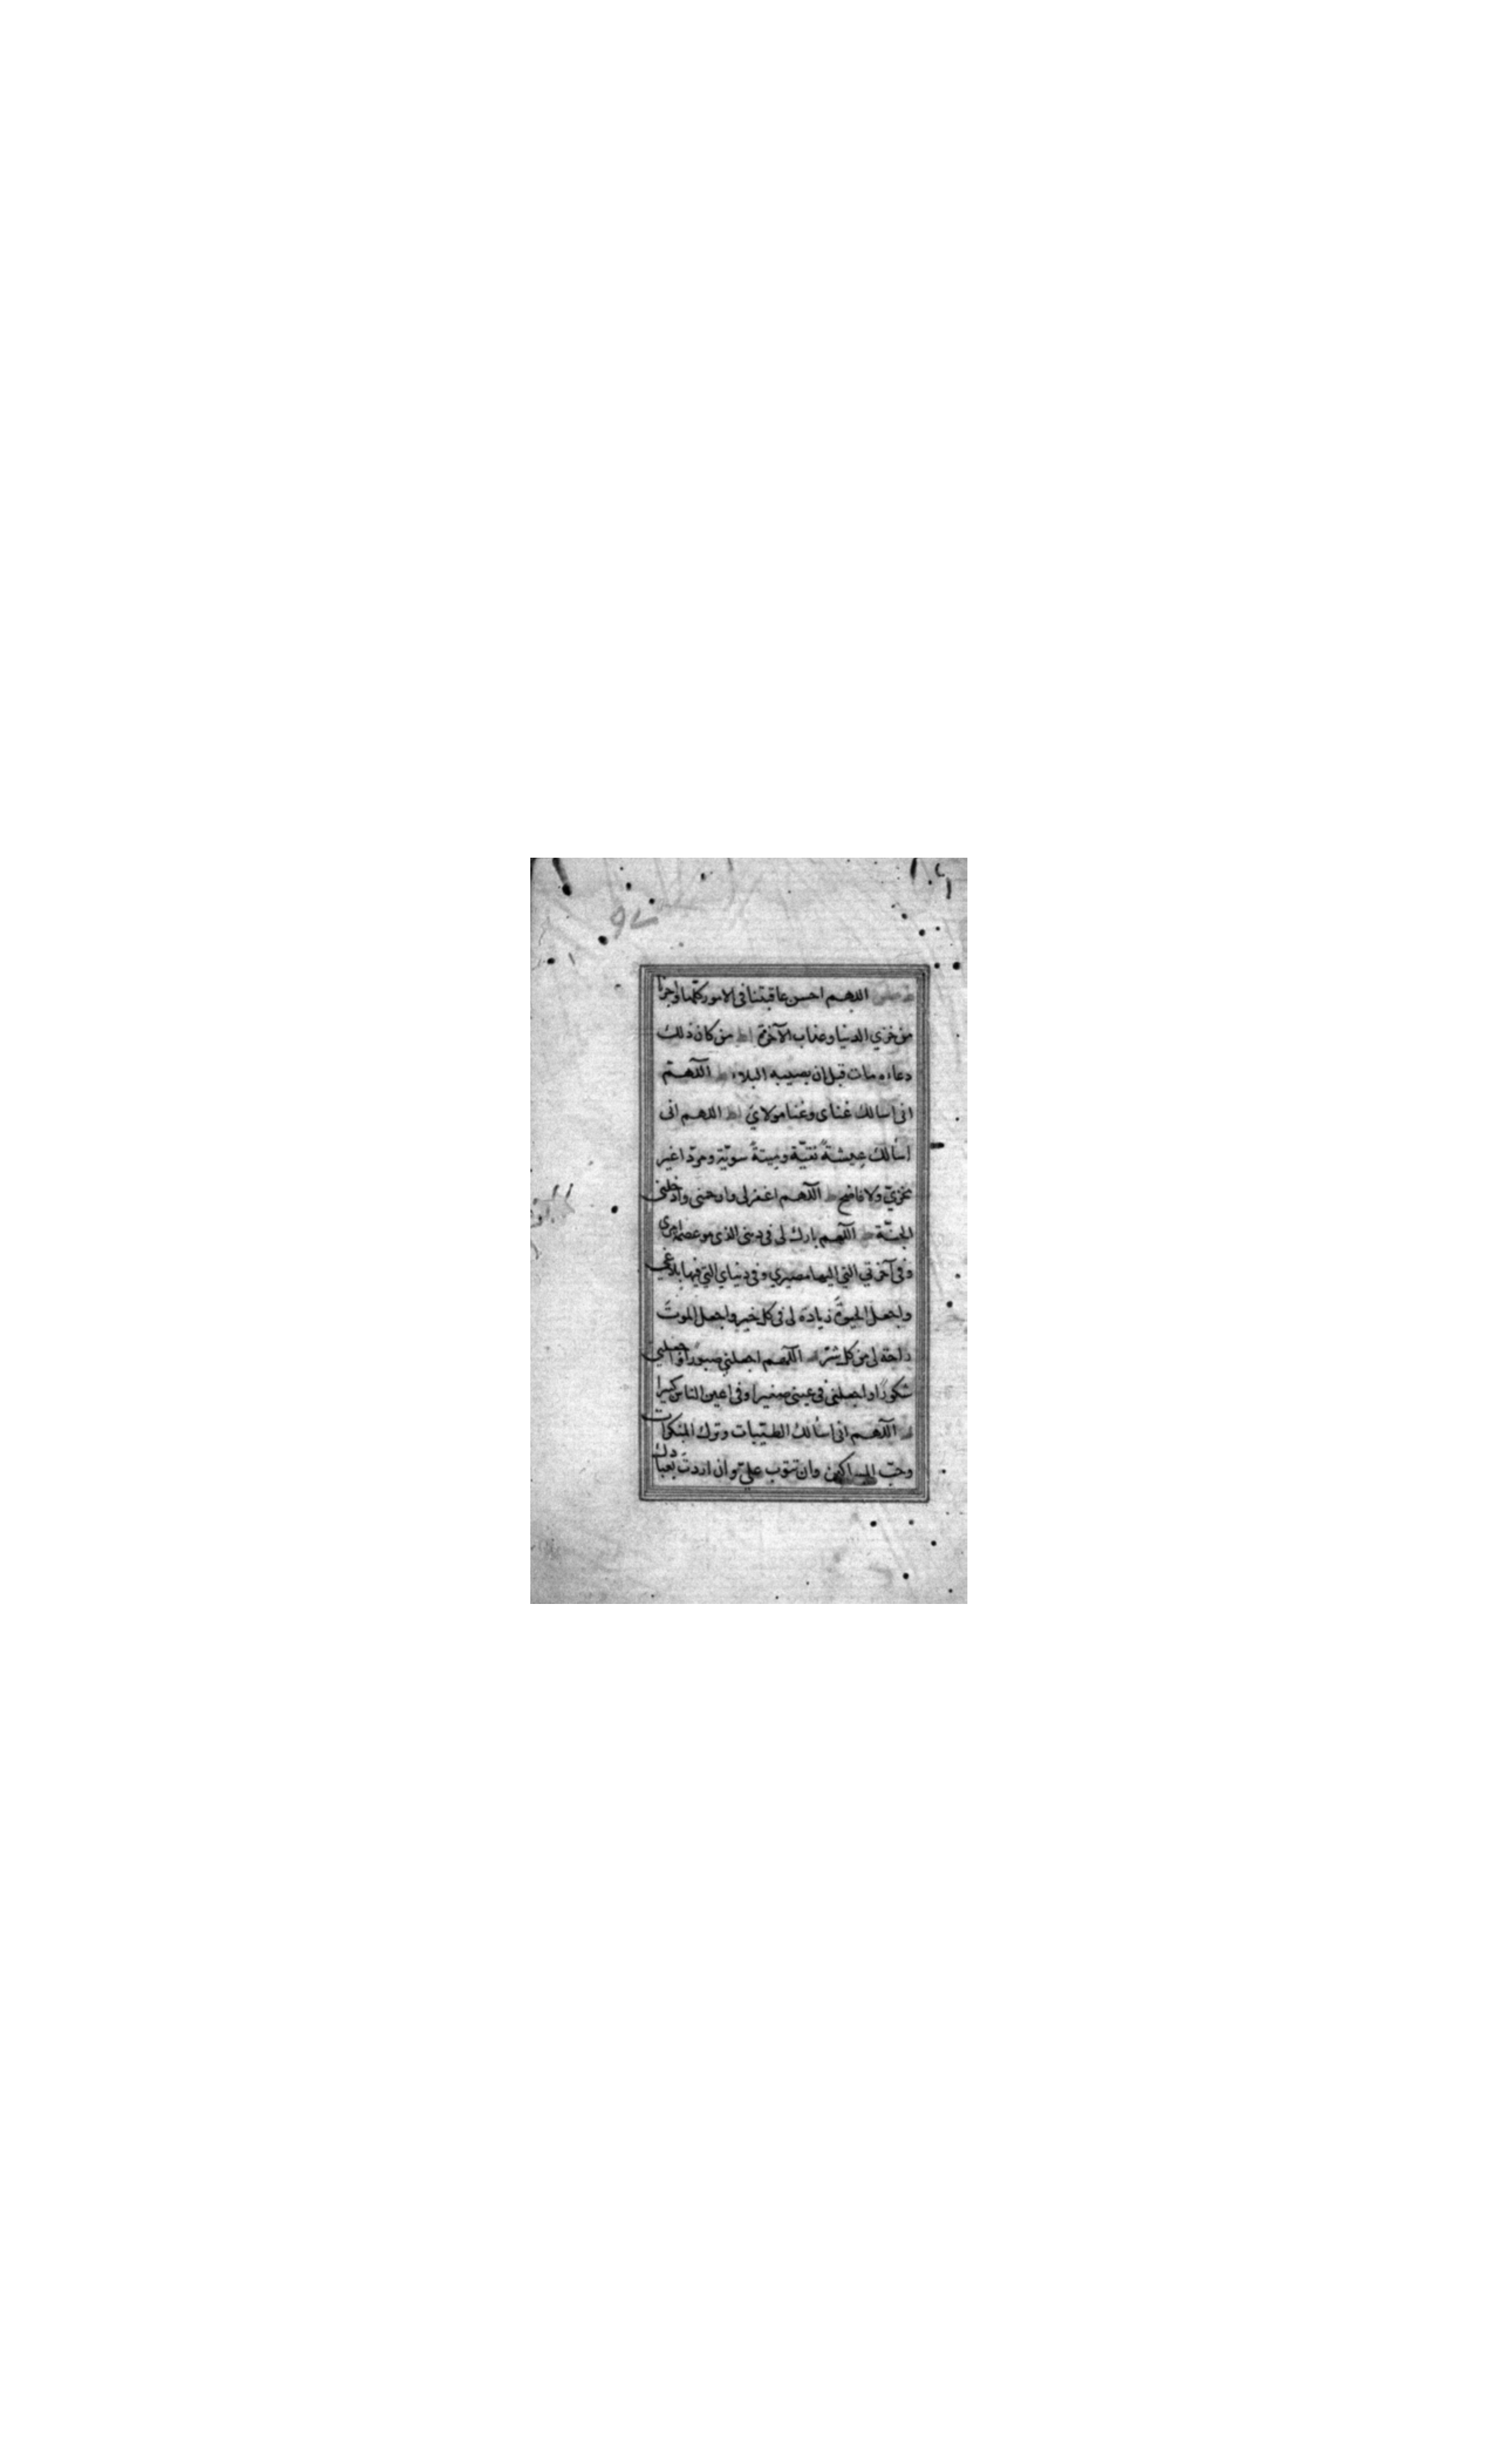 اللهم احسن عاقبتنا فى الامور كلها واجرنا
من خزي الدنيا وعذاب الآخرة ط من كان ذلك
دعاءه مات قبل ان يصيبه البلاء ط اللهم
انى اسالك غناى وغنا مولاي ط اللهم انى
اسألك عيشةً نقيّة وميتةً سويّة ومردّا غير
مخزيّ ولا فاضح ط اللهم اغفر لى وارحمنى وادخلنى
الجنّة ط اللهم بارك لى فى دينى الذى هو عصمة امرى
وفى آخرتي التي اليها مصيري وفى دنياي التي فيها بلاغي
واجعل الحيوةَ زيادة لى فى كل خير واجعل الموتَ
راحة لى من كل شرّ ط اللهم اجعلني صبورًا واجعلني
شكورًا واجعلنى فى عينى صغيرا وفى اعين الناس كبيرا
ط اللهم انى اسألك الطيّبات وترك المنكرات
وحبّ المساكين وان تتوب عليّ وان اردتَ بعبادك